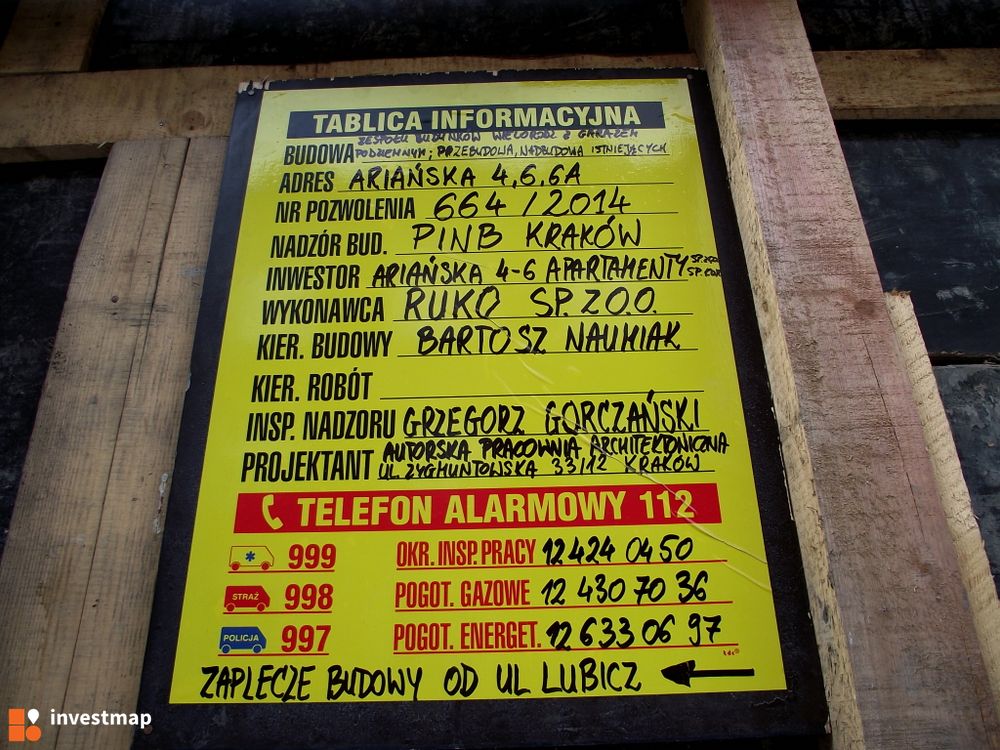 TABLICA INFORMACYJNA
ZESPOŁU BUDYNKÓW WIELORODZ Z GARAŻEM
BUDOWA PODZIEMNYM; PRZEBUDOWA, NADBUDOWA ISTNIEJĄCYCH
ADRES ARIAŃSKA 4,6,6A
NR POZWOLENIA 664/2014
NADZÓR BUD. PINB KRAKÓW
INWESTOR ARIAŃSKA 4-6 APARTAMENTY SP. ZOO SP. KOM
WYKONAWCA RUKO SP. ZO.O.
KIER. BUDOWY BARTOSZ NAUMIAK
KIER. ROBÓT
INSP. NADZORU GRZEGORZ GORCZAŃSKI
AUTORSKA PRACOWNIA ARCHITEKTONICZNA
PROJEKTANT UL. ZYGMUNTOWSKA 33/12 KRAKÓW
TELEFON ALARMOWY 112
999 OKR. INSP. PRACY 12 424 04 50
STRAŻ 998 POGOT. GAZOWE 12 430 70 36
POLICJA 997 POGOT. ENERGET. 12 633 06 97
ZAPLECZE BUDOWY OD UL LUBICZ
investmap